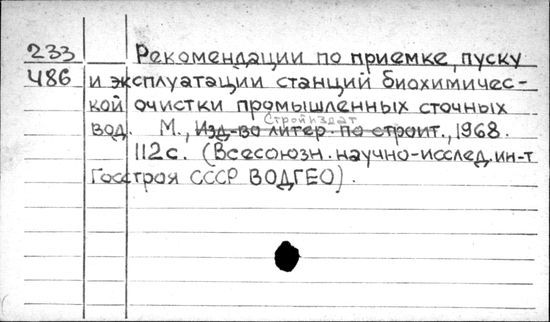 233 Рекомендации по приемке, пуску
486 и эксплуатации станций биохимичес-
кой очистки промышленных сточных
Стройиздат
вод. М., Изд-во литер. по строит., 1968.
112 с. (Всесоюзн. научно-исслед. ин-т
Госстроя СССР ВОДГЕО).